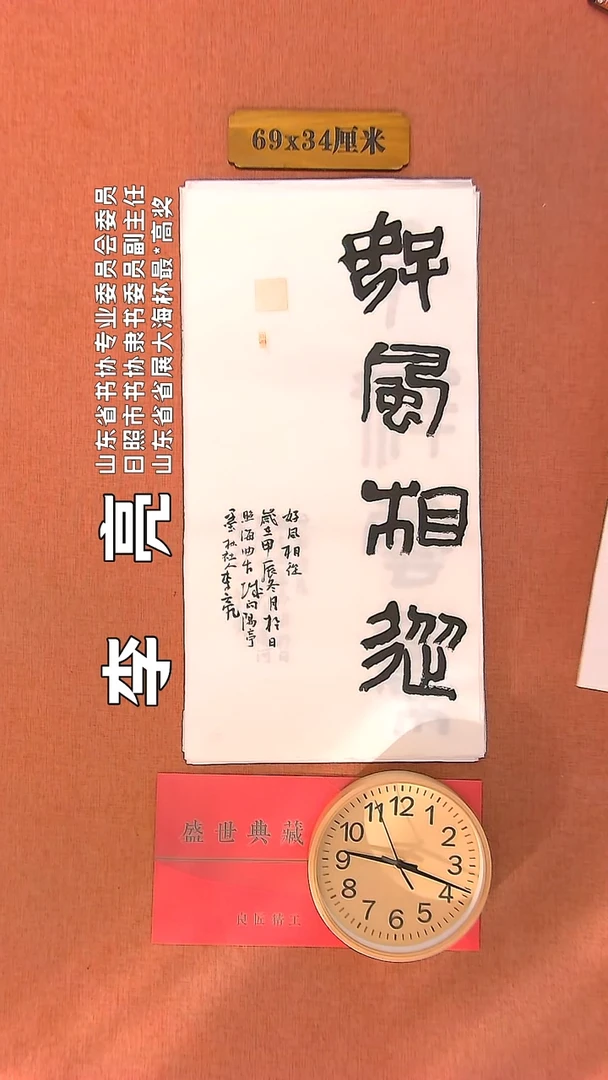 69x34厘米
山东省书协专业委员会委员
日照市书协隶书委员副主任
山东省省展大海杯最*高奖
李亮
好风相从
好风相从
岁在甲辰冬月于日
照海曲古城向阳亭
墨和社人李亮
盛世典藏
良匠精工
12
1
2
3
4
5
6
7
8
9
10
11